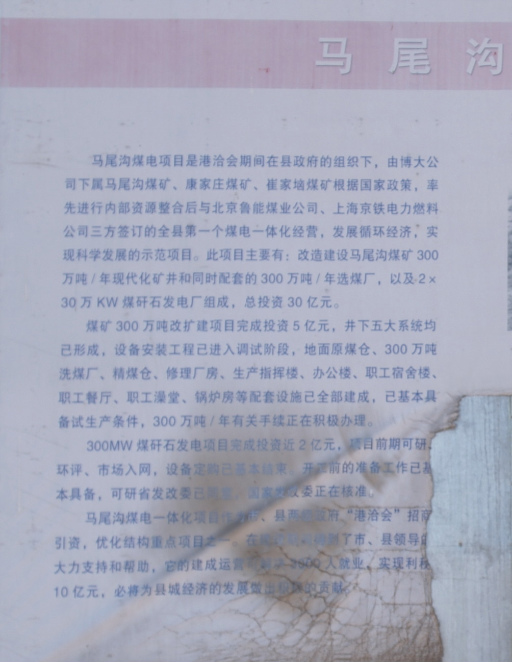 马尾沟
马尾沟煤电项目是港洽会期间在县政府的组织下，由博大公
司下属马尾沟煤矿、康家庄煤矿、崔家墕煤矿根据国家政策，率
先进行内部资源整合后与北京鲁能煤业公司、上海京铁电力燃料
公司三方签订的全县第一个煤电一体化经营，发展循环经济，实
现科学发展的示范项目。此项目主要有：改造建设马尾沟煤矿300
万吨/年现代化矿井和同时配套的300万吨/年选煤厂，以及2×
30万KW煤矸石发电厂组成，总投资30亿元。
煤矿300万吨改扩建项目完成投资5亿元，井下五大系统均
已形成，设备安装工程已进入调试阶段，地面原煤仓、300万吨
洗煤厂、精煤仓、修理厂房、生产指挥楼、办公楼、职工宿舍楼、
职工餐厅、职工澡堂、锅炉房等配套设施已全部建成，已基本具
备试生产条件，300万吨/年有关手续正在积极办理。
300MW煤矸石发电项目完成投资近2亿元，项目前期可研、
环评、市场入网，设备定购已基本结束，开工前的准备工作已基
本具备，可研省发改委已，国家发改委正在核准。
马尾沟煤电一体化项目市、县政府“港洽会”招商
引资，优化结构重点项目之一，在了市、县领导的
大力支持和帮助，它的建成运营人就业，实现利税
10亿元，必将为县城经济的发展做出的贡献